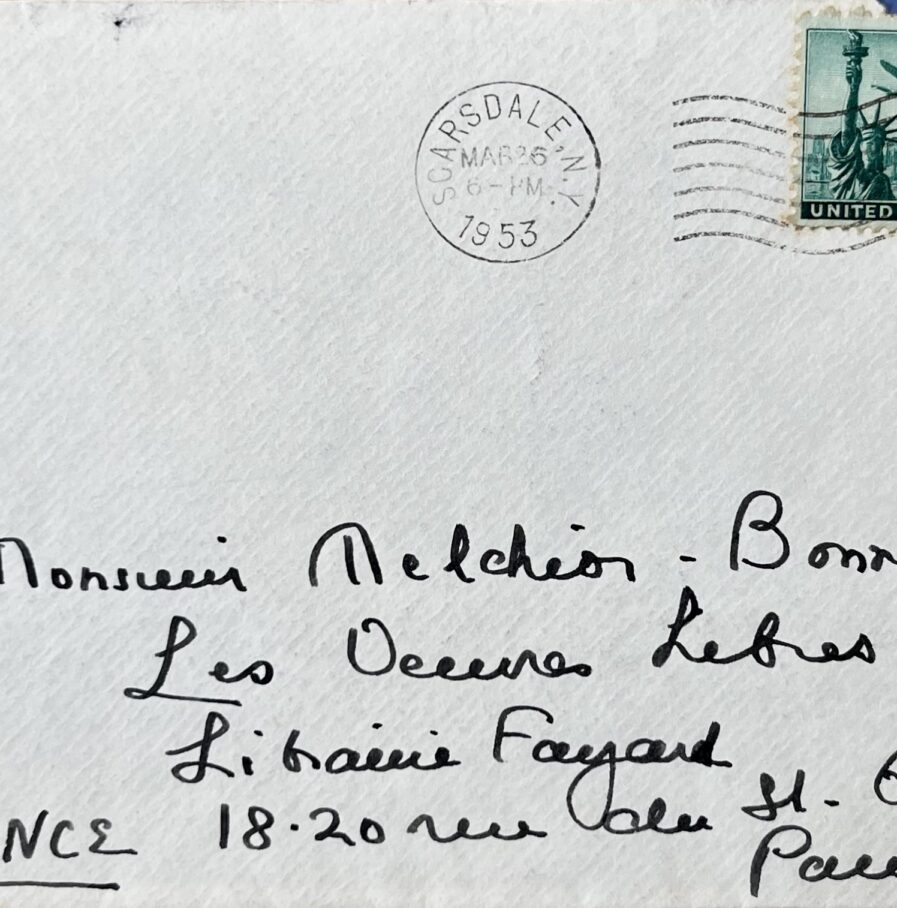 SCARSDALE, N.Y.
MAR 26
6 - PM
1953
UNITED
Monsieur Melchior - Bonn
Les Oeuvres Libres
Librairie Fayard
NCE 18.20 rue du St. G
Paris